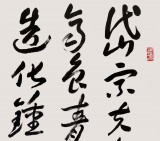 岱宗夫
齊魯青
造化鍾